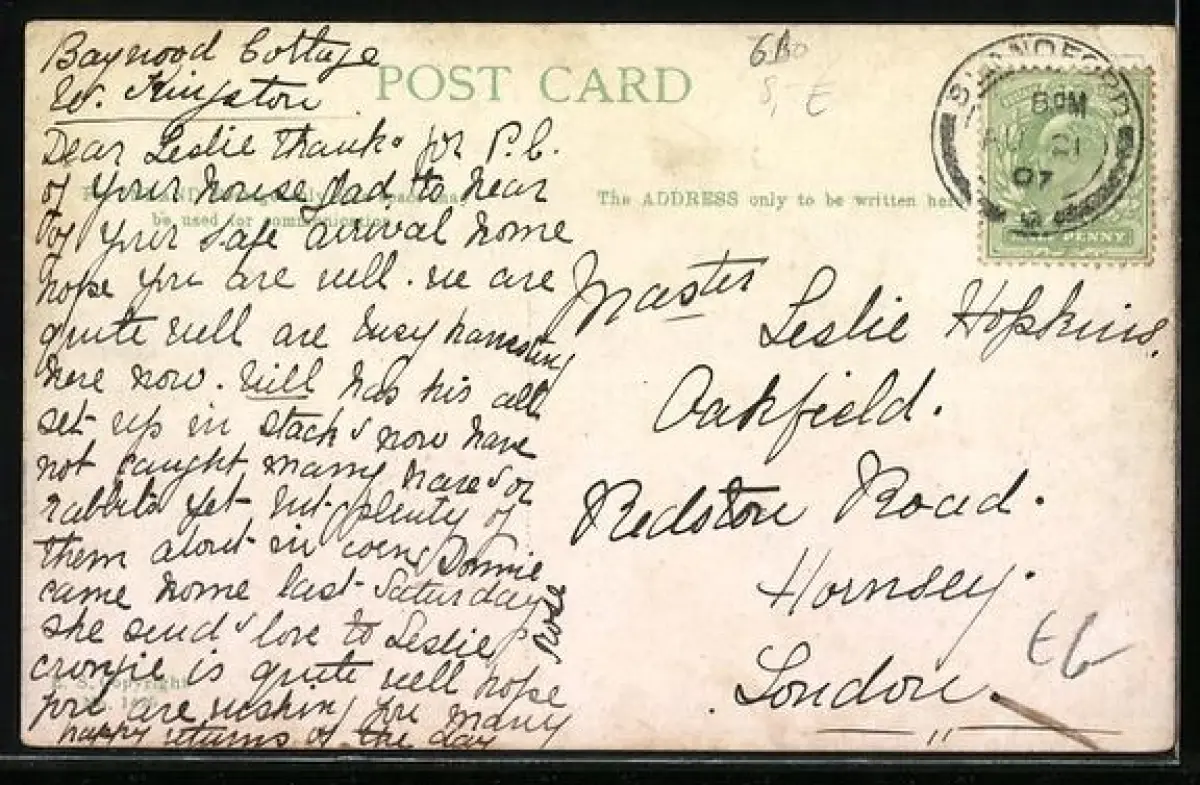 Baywood Cottage
W. Kingston
POST CARD
Dear Leslie Thanks for P.C.
of your house glad to hear
of your safe arrival home
hope you are well. we are
quite well are busy harvesting
here now. Will has his all
set up in stacks now have
not caught many hares or
rabbits yet but plenty of
them about in corn Donnie
came home last Saturday
she sends love to Leslie
cronjie is quite well hope
you are wishing you many
happy returns of the day
Rose
The ADDRESS only to be written here
be used for communication
Master
Leslie Hopkins.
Oakfield.
Redston Road.
Hornsey.
London.
8 PM
AU 21
07
PENNY